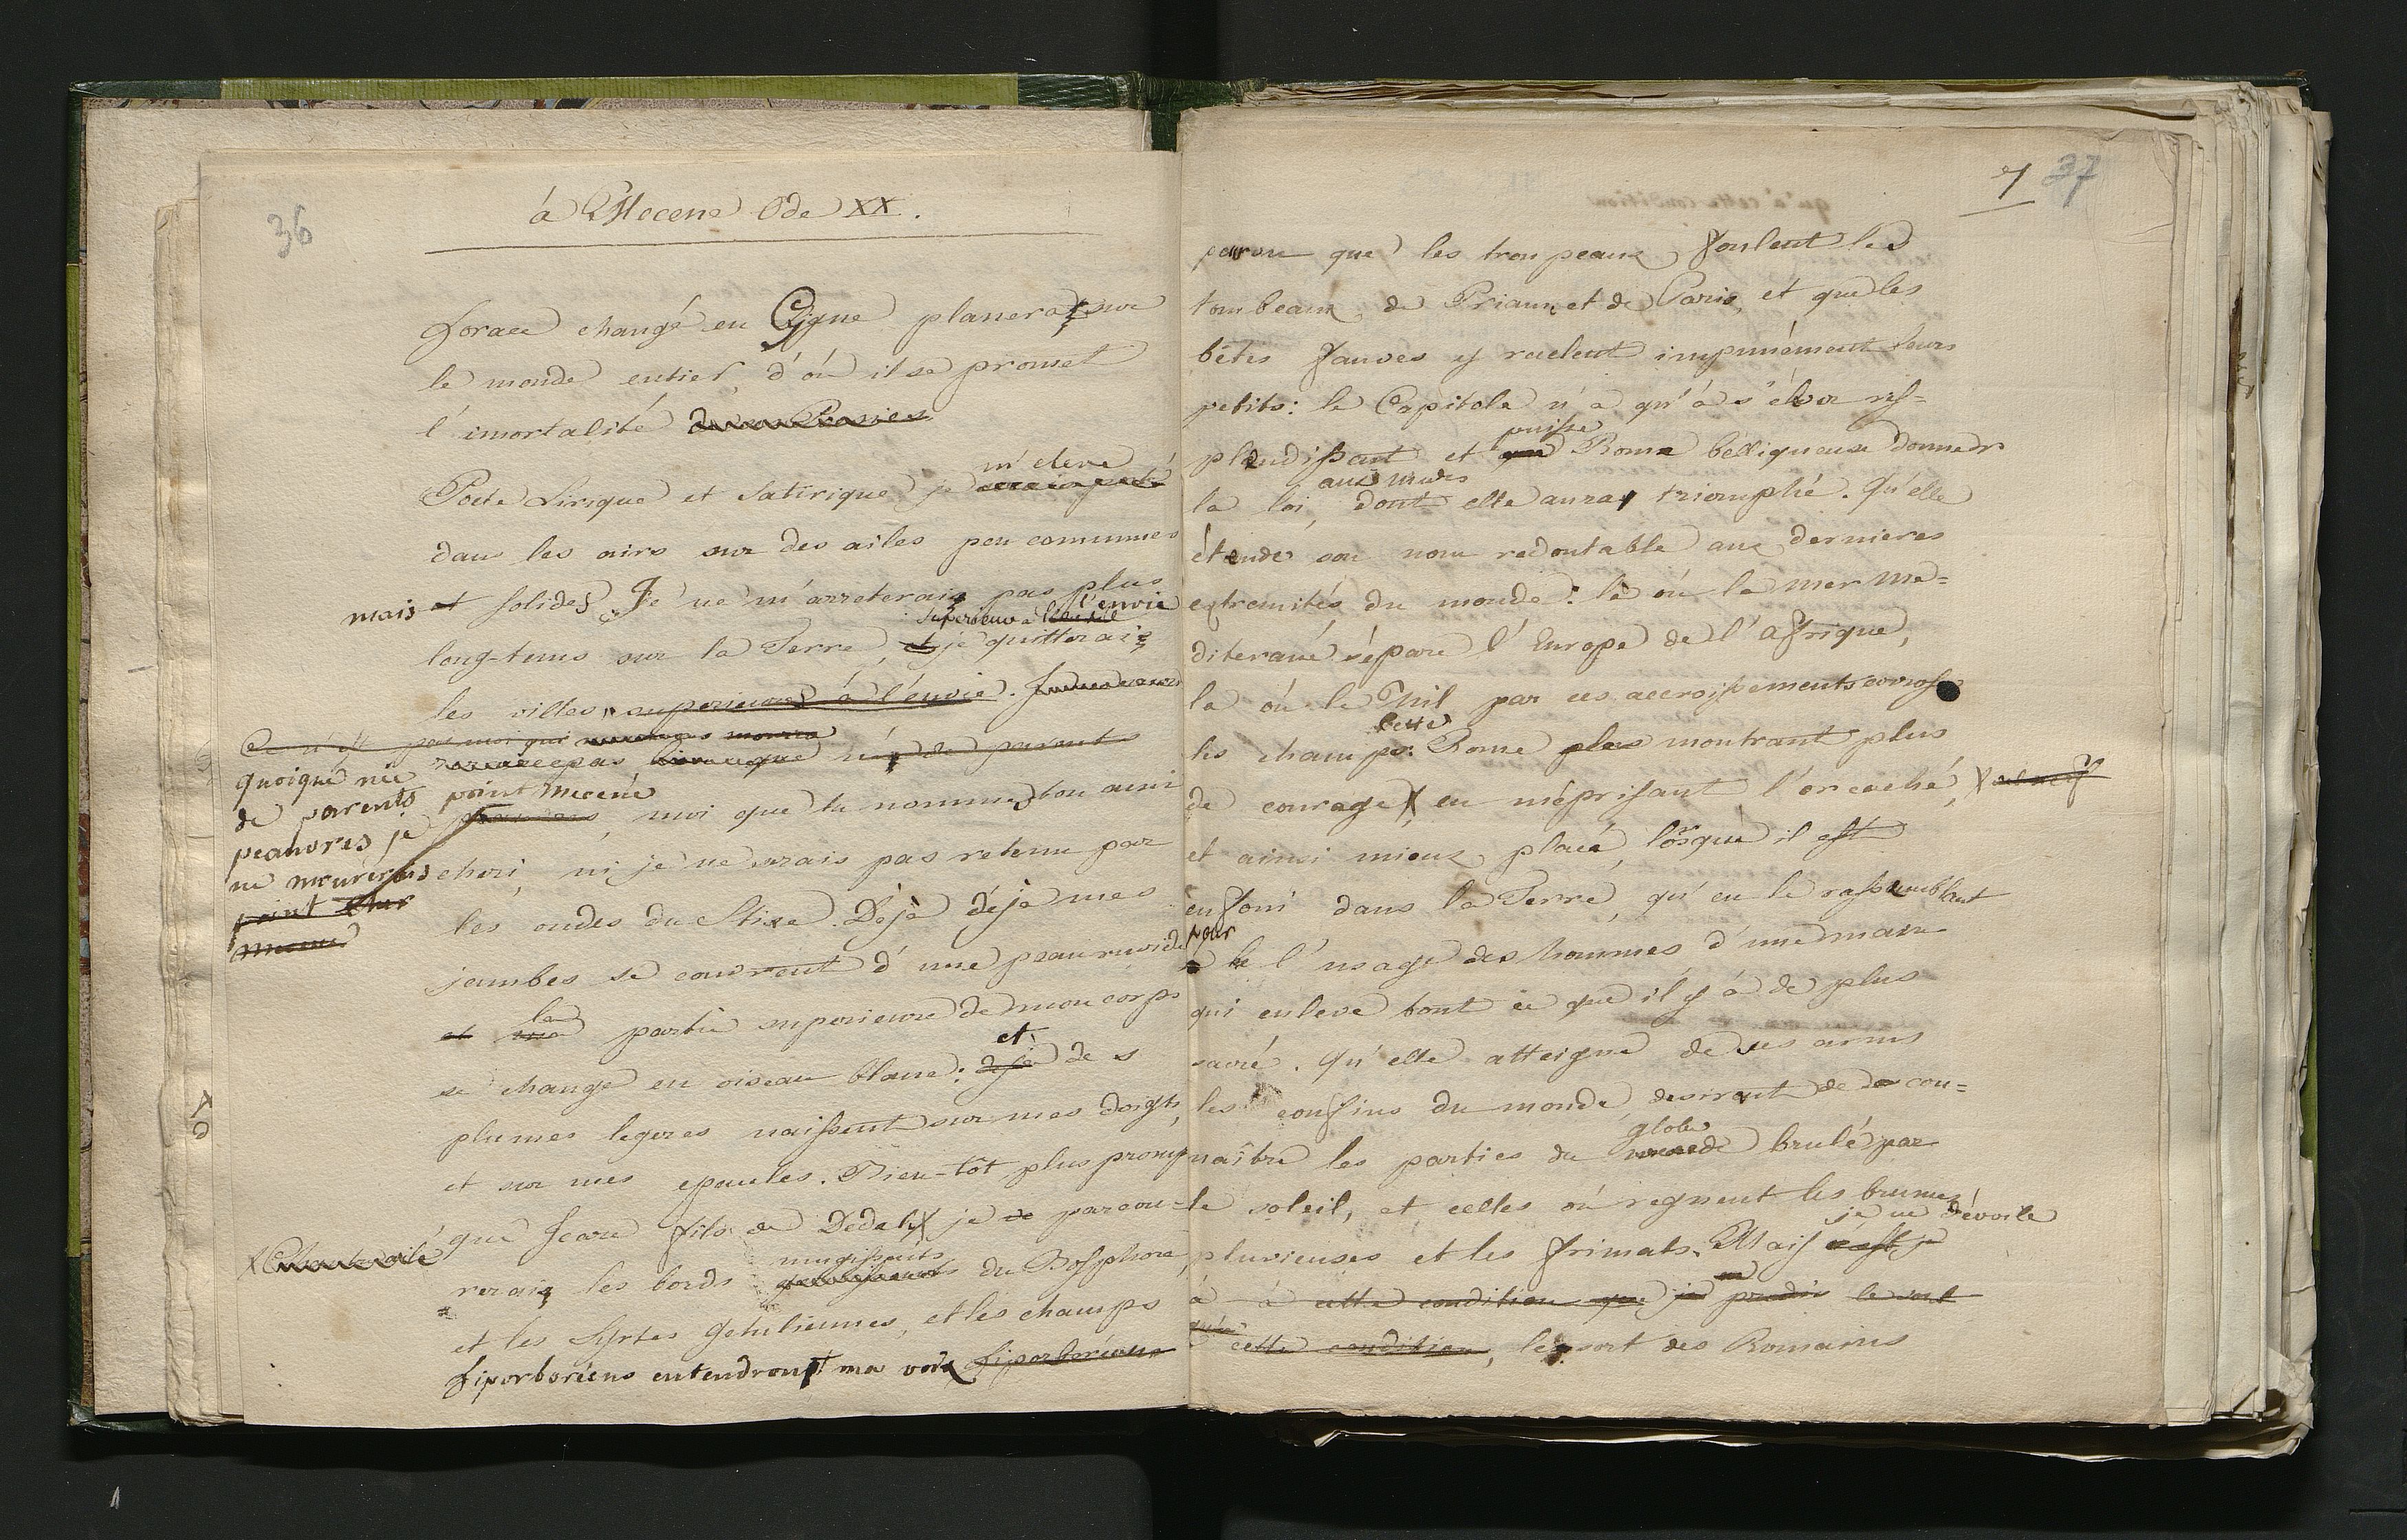 36
à Mecene Ode XX.
Horace changé en Cygne planera sur
le monde entier, d'où il se promet
l'imortalité
m'eleve
Poete Lirique et Satirique je
dans les airs sur des ailes peu comunes
mais et solides. Je ne m'arreterai pas plus
superieur à l'envie
long-tems sur la Terre, et je quitterai
les villes, superieur à l'envie.
Ce n'est pas moi qui mourra
quoique née
pas né de parents
de parents
point Mecene
peauvres je
, moi que tu nommes ton ami
ne mourerais
cheri, ni je ne serais pas retenu par
point
les ondes du Stixe. Déjà déjà mes
jambes se couvrent d'une peau ruvide
la
et ma partie superieure de mon corps
et
se change en oiseau blanc: deja de s
plumes legeres naissent sur mes doigts,
et sur mes epaules. Bien-tôt plus promp
que Icare fils de Dedale je parcou-
mugissants
rerai les bords du Bosphore,
et les Syrtes Getuliennes, et les champs
Hiporboréens entendront ma voix Hiporboréens
7 37
pourvu que les troupeaux foulent les
tombeaux de Priam et de Paris, et que les
bêtes fauves y racelent impunément leurs
petits: le Capitole n'a qu'à s'élever res-
puisse
plendissant et que Rome belliqueuse donner
aux Medes
la loi, dont elle aura triomphé. Qu'elle
étende son nom redoutable aux dernieres
extremités du monde: là où la mer Me-
diterané sépare l'Europe de l'Afrique,
la où le Nil par ces accroissements arrose
cette
les champs: Rome plus montrant plus
de courage, en méprisant l'or caché,
et ainsi mieux placé, lorsque il est
enfoui dans la Terre, qu'en le rassemblant
pour
l'usage des hommes d'une main
qui enleve tout ce que il y à de plus
sacré. Qu'elle atteigne de ses armes
les confins du monde, desirant de cou-
globe
naître les parties du monde brulé par
le soleil, et celles où regnent les brumes
je ne dévoile
pluvieuses et les frimats. Mais c'est
à à cette condition que je predis le sort
qu'à
cette condition, le sort des Romains